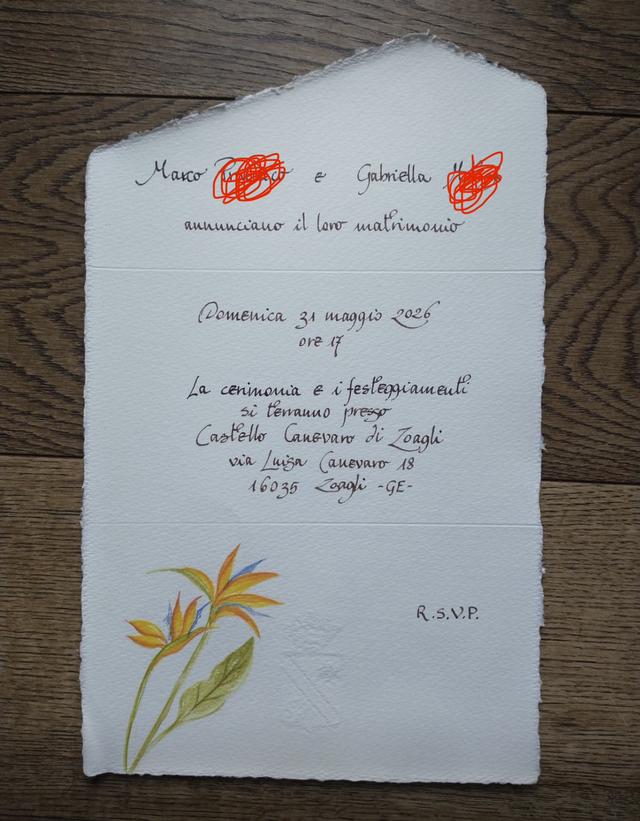 Marco e Gabriella
annunciano il loro matrimonio
Domenica 31 maggio 2026
ore 17
La cerimonia e i festeggiamenti
si terranno presso
Castello Canevaro di Zoagli
via Luisa Canevaro 18
16035 Zoagli -GE-
R.S.V.P.